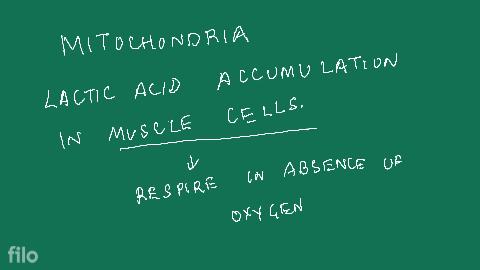 MITOCHONDRIA
LACTIC ACID ACCUMULATION
IN MUSCLE CELLS.
RESPIRE IN ABSENCE OF
OXYGEN
filo